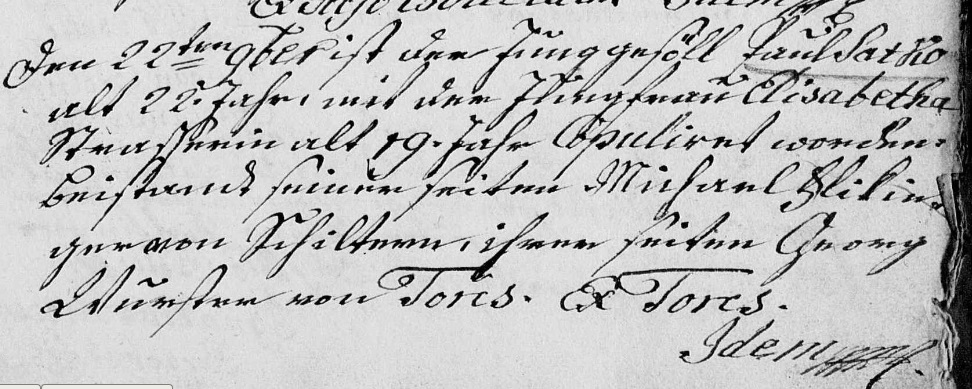 Den 22ten 9ber ist der Junggesöll Paul Satko
alt 22. Jahr, mit der Jungfrau Elisabetha
Strasserin alt 19. Jahr Copuliret worden.
beistand seiner seiten Michael
ger von Schiltern, ihrer seiten Georg
Wurster von Tores. Ex Tores.
Idem